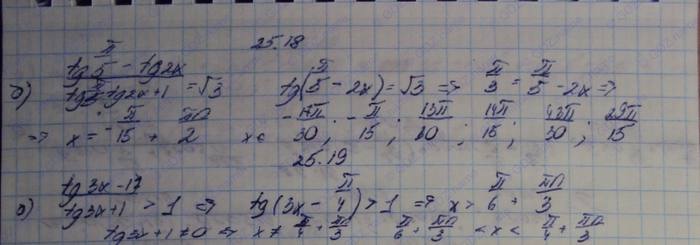 25.18
б) (tg π/5 - tg 2x)/(tg π/5 tg 2x + 1) = √3 tg(π/5 - 2x) = √3 => π/3 = π/5 - 2x =>
=> x = -π/15 + πn/2 x ∈ -17π/30; -π/15; 13π/30; 14π/15; 43π/30; 29π/15
25.19
а) (tg 3x - 1)/(tg 3x + 1) > 1 => tg(3x - π/4) > 1 => x > π/6 + πn/3
tg 3x + 1 ≠ 0 => x ≠ π/4 + πn/3 π/6 + πn/3 < x < π/4 + πn/3